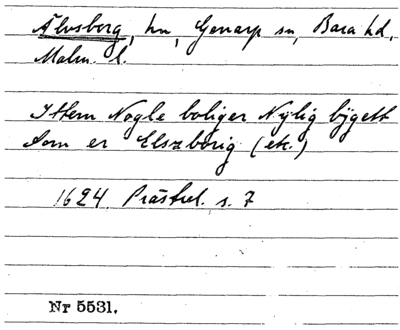 Älvsborg, hn, Genarp sn, Bara hd,
Malm. l.
Ittem Nogle boliger Nÿlig bÿgett
som er Elszborig (etc.)
1624 Prästrel. s. 7
Nr 5531.